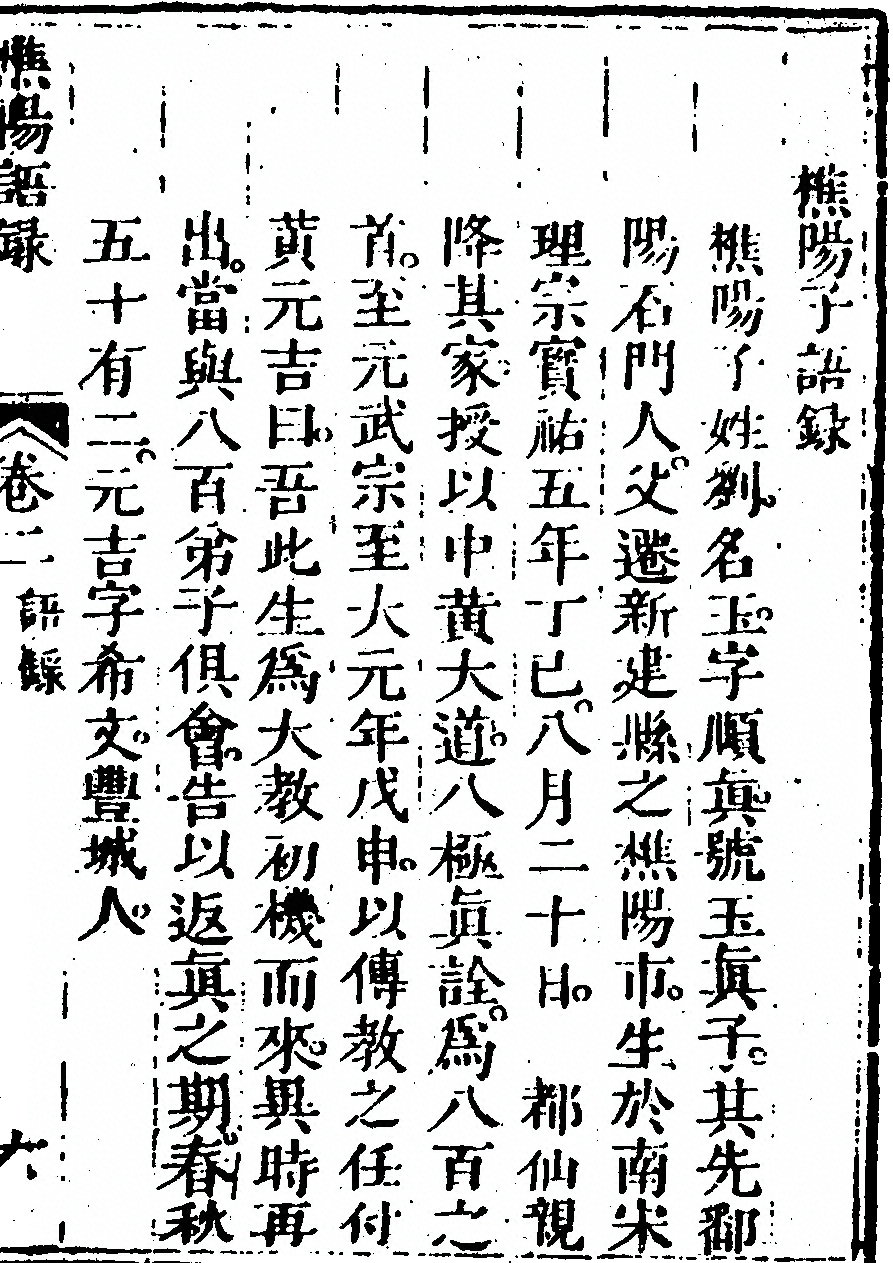 樵陽子語錄
樵陽子姓劉。名玉。字頤真。號玉眞子。其先鄱
陽石門人。父遷新建縣之樵陽市。生於南宋
理宗寶祐五年丁巳。八月二十日。 都仙親
降其家。授以中黃大道。八極眞詮。爲八百之
首。至元武宗至大元年戊申。以傳教之任付
黃元吉曰。吾此生爲大教初機而來。異時再
出。當與八百弟子俱會。告以返眞之期。春秋
五十有二。元吉字希文。豐城人。
樵陽語録
卷二 語錄